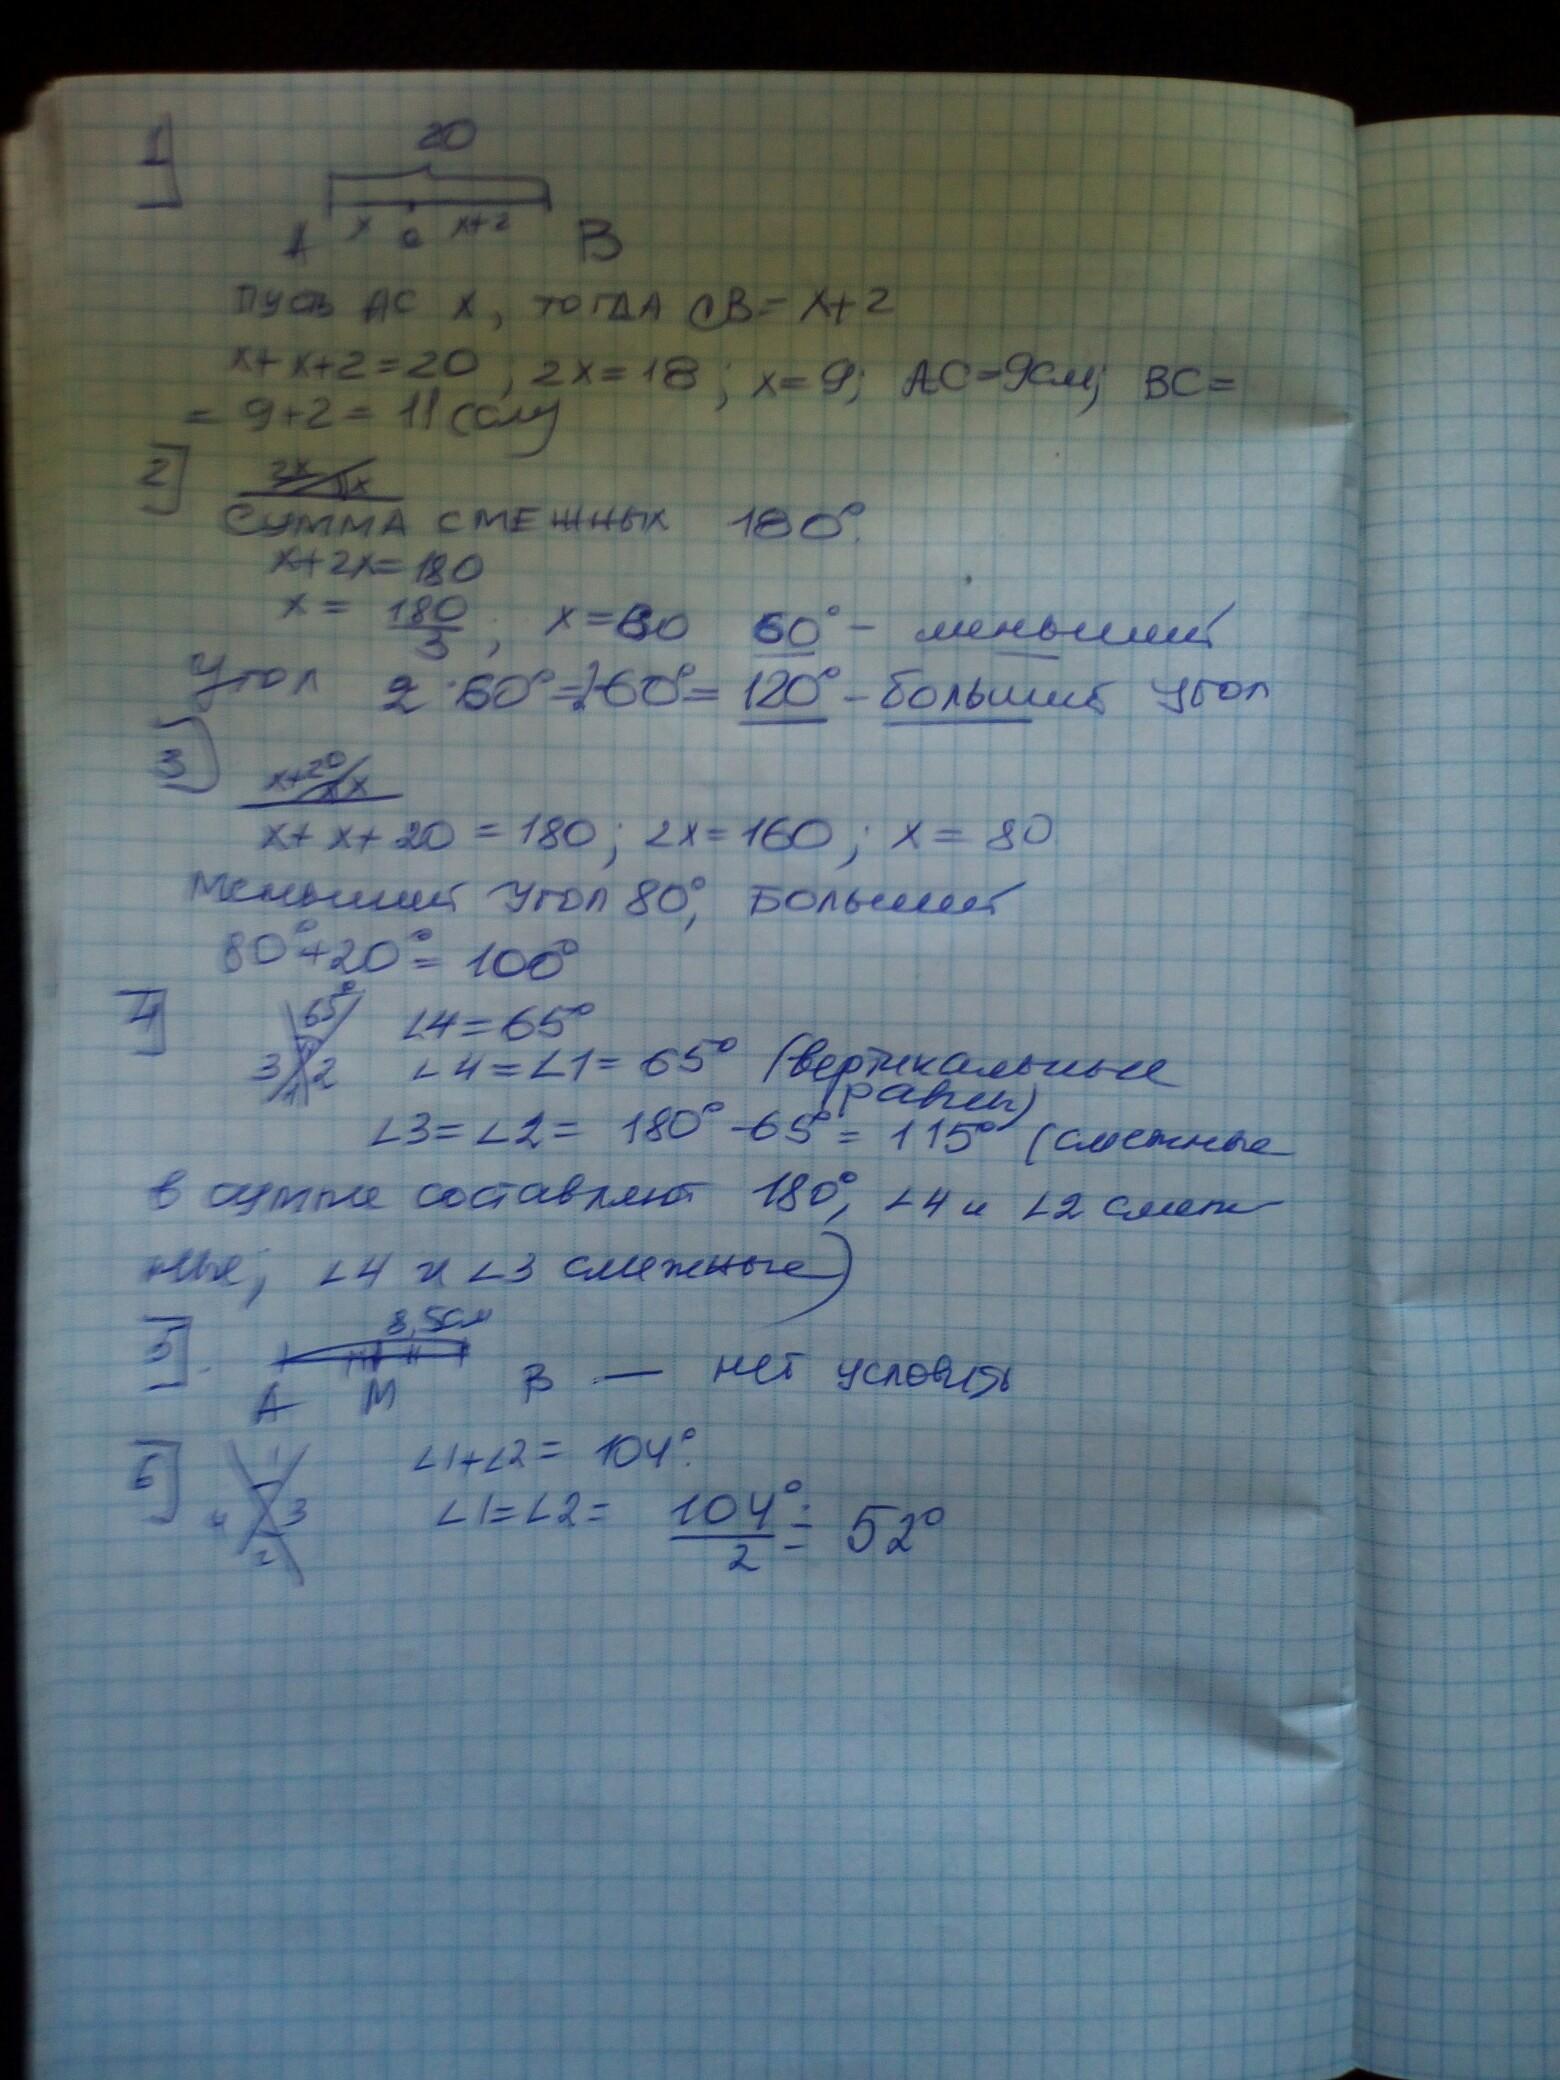 1
20
A x c x+2 B
Пусть AC x, тогда CB = x+2
x+x+2=20, 2x=18; x=9; AC=9см; BC=
= 9+2 = 11 (см)
2
2x x
Сумма смежных 180°.
x+2x=180
x = 180/3; x=60 60° - меньший
угол 2·60°=2·60°= 120° - больший угол
3
x+20 x
x+x+20=180; 2x=160; x=80
Меньший угол 80°, Больший
80°+20°= 100°
4 65° ∠4=65°
3 1 2 ∠4=∠1= 65° (вертикальные
равны)
∠3=∠2= 180°-65°= 115° (смежные
в сумме составляют 180°, ∠4 и ∠2 смеж
ные, ∠4 и ∠3 смежные)
5 8,5см
A M B — нет условия
6 1 ∠1+∠2= 104°.
4 3 ∠1=∠2= 104°/2 = 52°
2